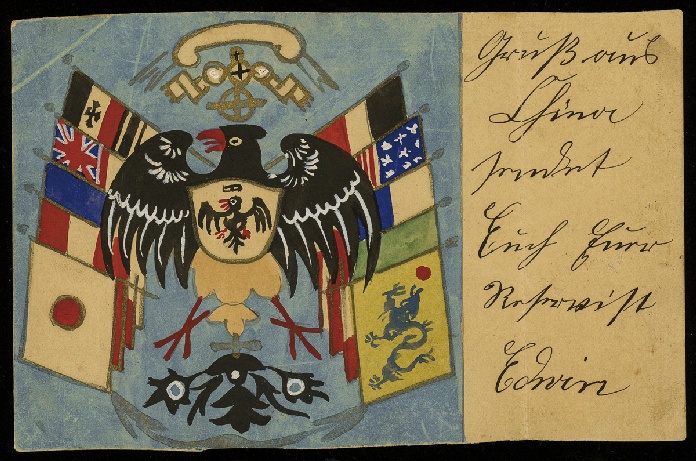 Gruß aus
China
sendet
Euch Euer
Reservist
Edwin